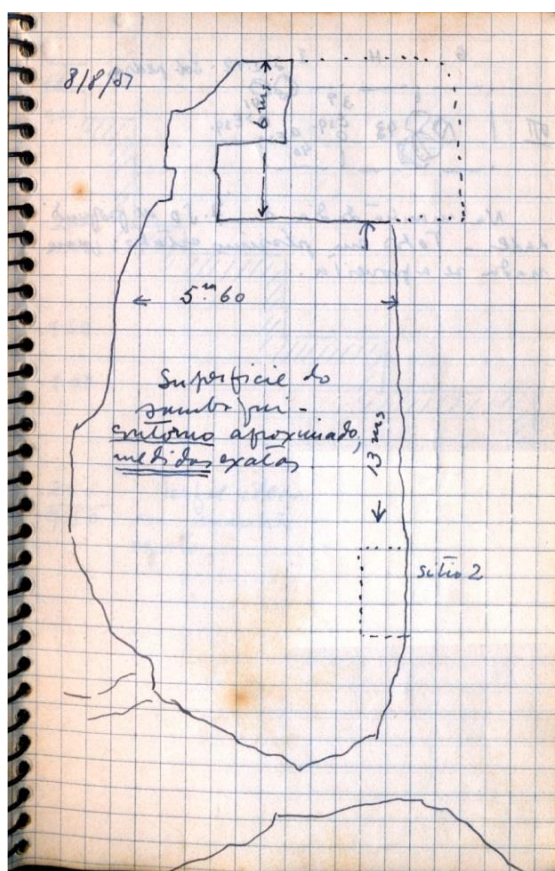 8/8/57
6 ms
5m60
Superficie do
sambaqui -
contôrno aproximado,
medidas exatas
13 ms
sitio 2